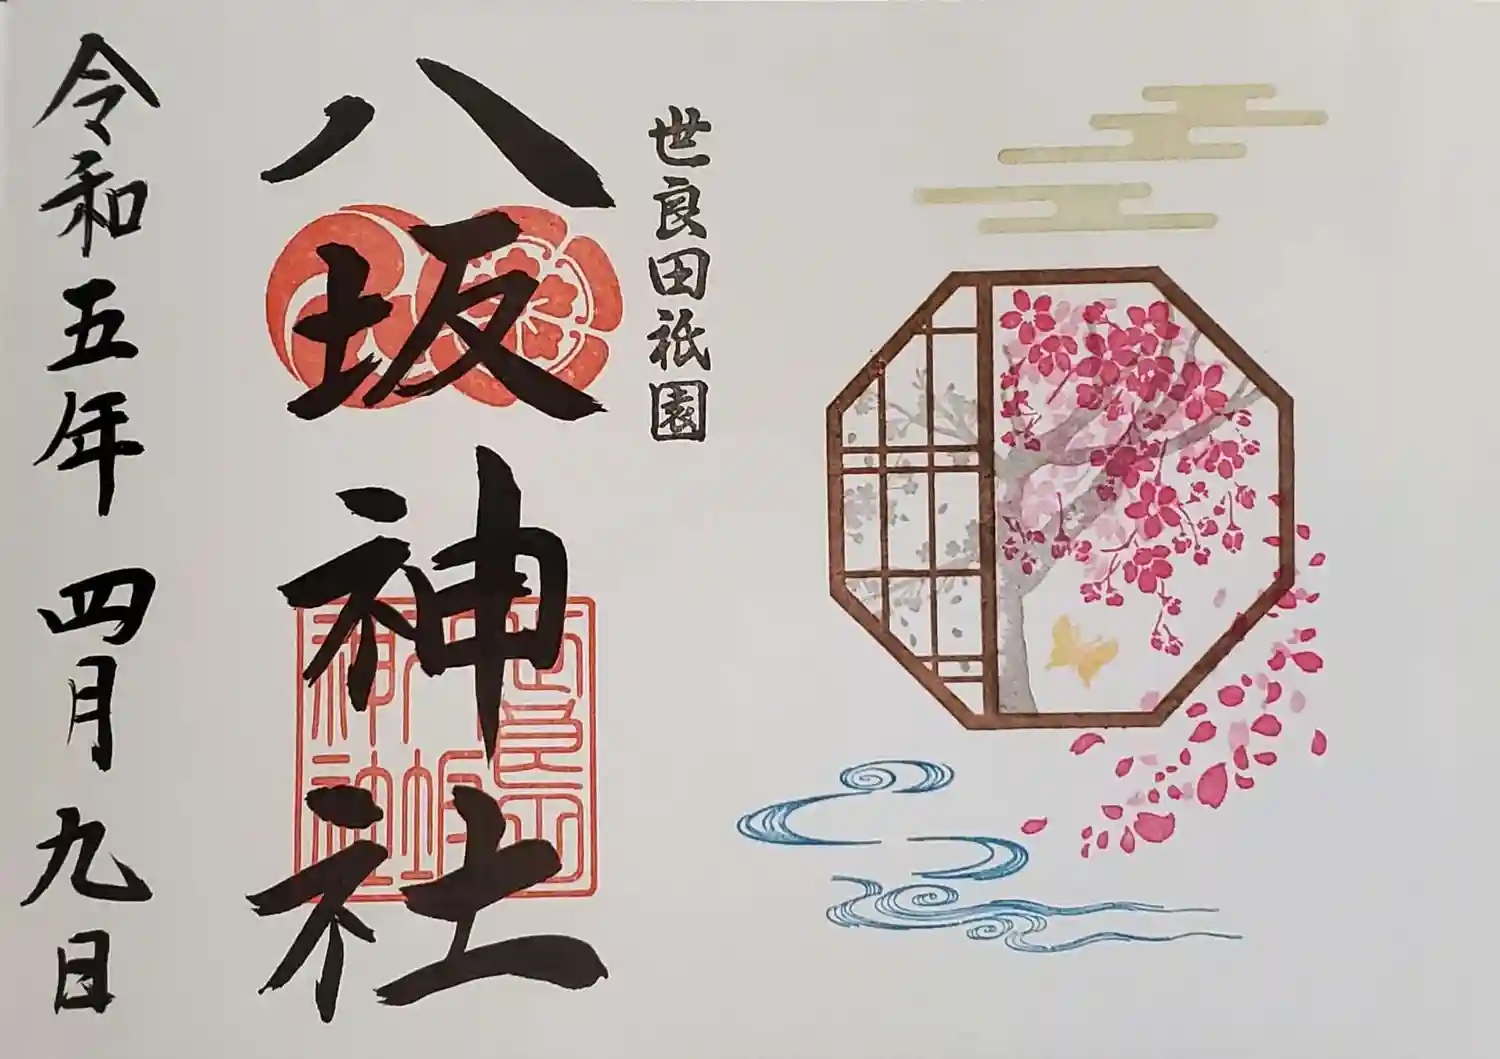 世良田祇園
八坂神社
令和五年 四月九日
世良田
八坂
神社